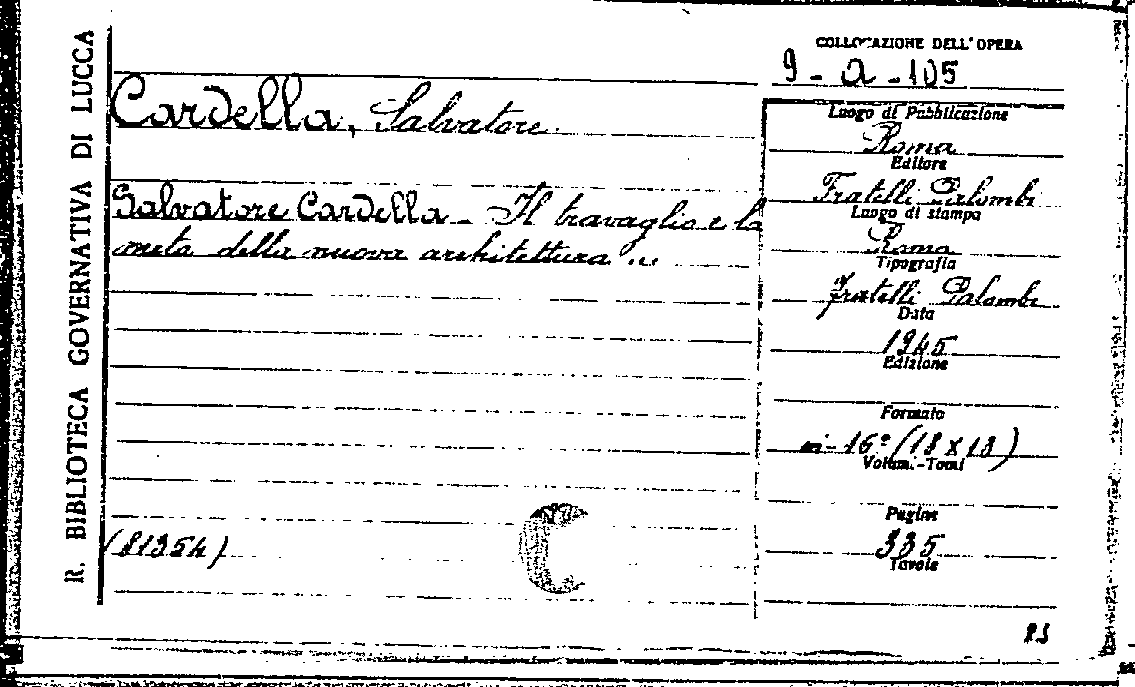 R. BIBLIOTECA GOVERNATIVA DI LUCCA
COLLOCAZIONE DELL'OPERA
9 - a - 105
Cardella, Salvatore
Salvatore Cardella - Il travaglio e la
meta della nuova architettura ...
(81354)
Luogo di Pubblicazione
Roma
Editore
Fratelli Palombi
Luogo di stampa
Roma
Tipografia
Fratelli Palombi
Data
1945
Edizione
Formato
in-16° (18 x 13)
Volumi.-Tomi
Pagine
335
Tavole